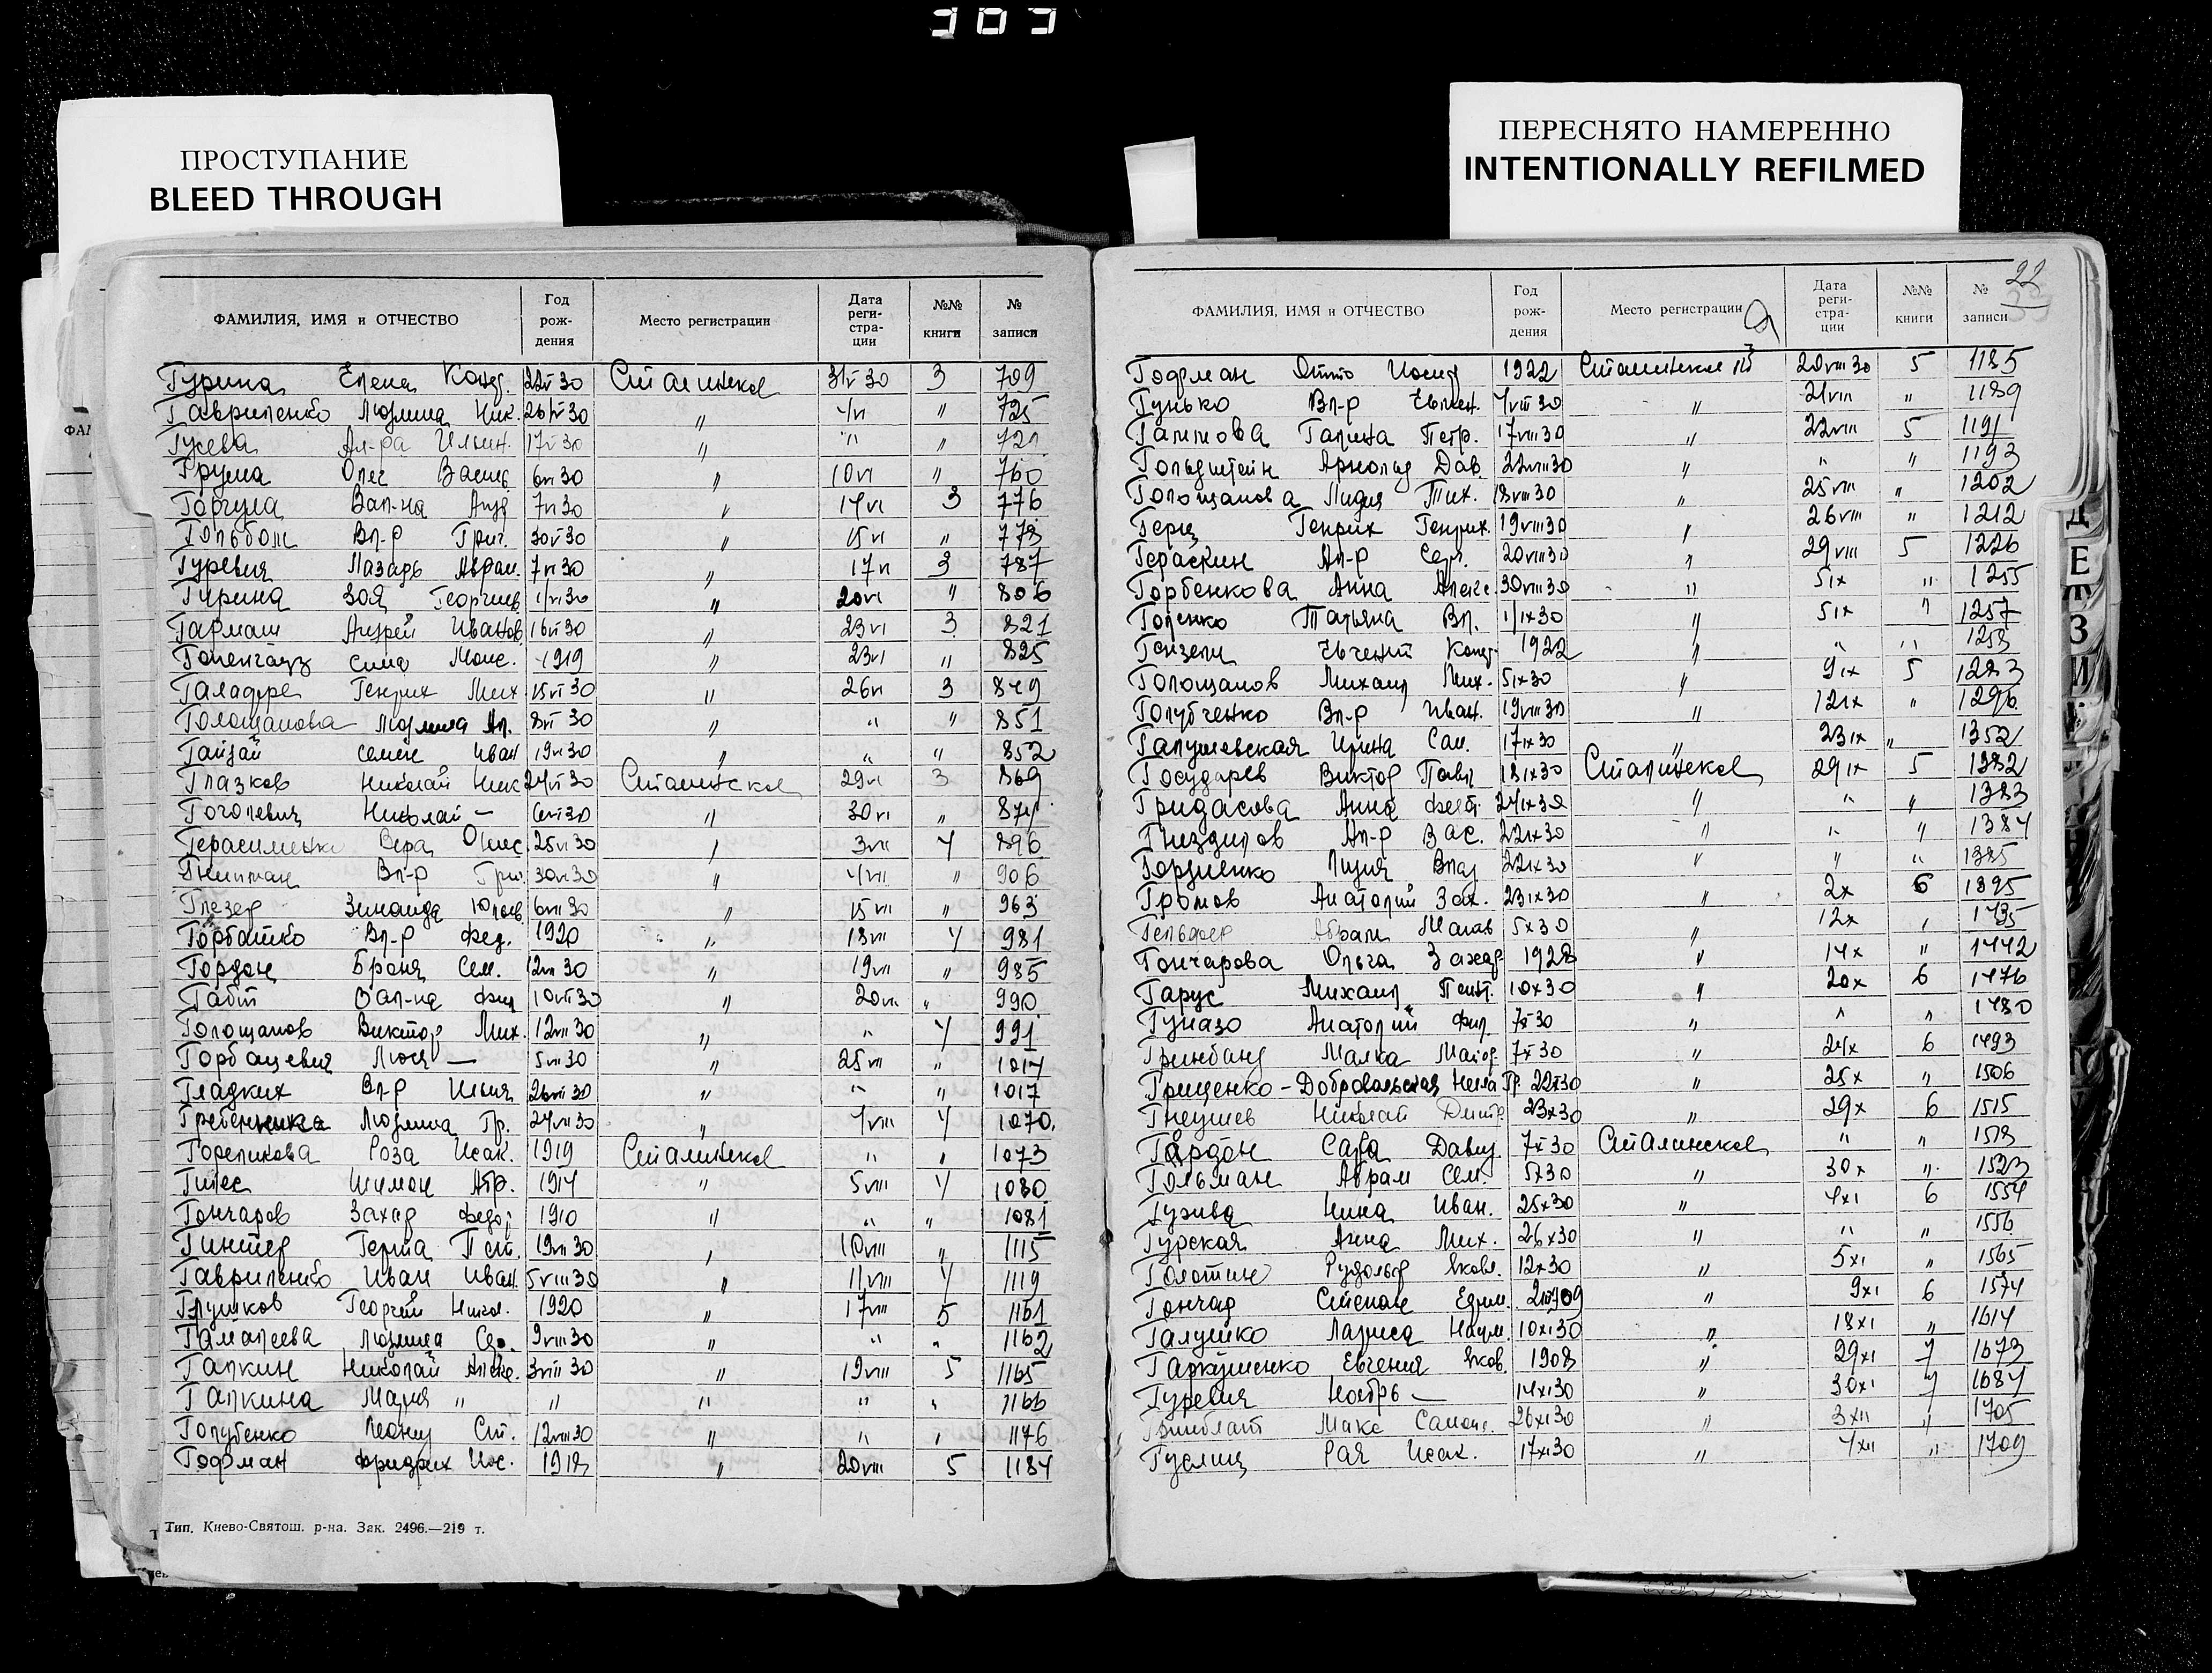 303
ПРОСТУПАНИЕ
BLEED THROUGH
ПЕРЕСНЯТО НАМЕРЕННО
INTENTIONALLY REFILMED
ФАМИЛИЯ, ИМЯ и ОТЧЕСТВО Год рож- дения Место регистрации Дата реги- стра- ции №№ книги № записи
Гурина Елена Конд. 22V30 Сталинская 31V30 3 709
Гавриленко Людмила Ник. 26V30 " 4VI " 725
Гусева Ал-ра Ильин. 17V30 " " "
Грума Олег Васил 6VI30 " 10VI " 760
Горгула Вал-на Анд 7VI30 " 14VI 3 776
Гольбом Вл-р Григ. 30V30 " 15VI " 778
Гуревич Лазарь Аврам. 7VI30 " 17VI 3 787
Гурина Зоя Георгиев 1/VI30 " 20VI " 806
Гармаш Андрей Иванов 16VI30 " 23VI 3 821
Сима Моис. 1919 " 23VI " 825
Генрих Мих 15VI30 " 26VI 3 849
Голощапова Людмила Ал. 8VI30 " " " 851
Гайдай Семён Иван 19VI30 " " " 852
Глазков Николай Ник 24VI30 Сталинская 29VI 3 869
Гоголевич Николай — 6VI30 " 30VI " 874
Герасименко Вера 25VI30 " 3VII 4 896
Вл-р Григ. 30VI30 " 4VII " 906
Глезер Зинаида 6VII30 " 15VII " 963
Горбатко Вл-р Фед. 1920 " 18VII 4 981
Гордон Броня Сем. 12VII30 " 19VII " 985
Вал-на Фил 10VII30 " 20VII " 990
Голощапов Виктор Мих. 12VII30 " " 4 991
Горбацевич Люся — 5VII30 " 25VII " 1014
Гладких Вл-р Ильич 26VII30 " " " 1017
Гребенника Людмила Гр. 24VII30 " 4VIII 4 1070
Гореликова Роза Исак. 1919 Сталинская " " 1073
Шимон Абр. 1914 " 5VIII 4 1080
Гончаров Захар Федор 1910 " " " 1081
Гинтер Герта Пет. 19VII30 " 10VIII " 1115
Гавриленко Иван Иван. 5VIII30 " 11VIII 4 1119
Глушков Георгий Никол. 1920 " 17VIII 5 1161
Гамалеева Людмила 9VIII30 " " " 1162
Галкин Николай Алекс. 3VIII30 " 19VIII 5 1165
Галкина Мария " " " " " 1166
Голубенко Леонид Ст. 12VIII30 " " " 1176
Гофман Фридрих Иос. 1918 " 20VIII 5 1184
Тип. Киево-Святош. р-на. Зак. 2496.—219 т.
22
ФАМИЛИЯ, ИМЯ и ОТЧЕСТВО Год рож- дения Место регистрации Дата реги- стра- ции №№ книги № записи
Гофман Отто Иосиф 1922 Сталинская 20VIII30 5 1185
Гунько Вл-р Евген. 4VIII30 " 21VIII " 1189
Галина Петр. 17VIII30 " 22VIII 5 1191
Гольдштейн Арнольд Дав. 22VIII30 " " " 1193
Голощапова Лидия Тих. 18VIII30 " 25VIII " 1202
Герц Генрих Генрих. 19VIII30 " 26VIII " 1212
Гераскин Ал-р Сер. 20VIII30 " 29VIII 5 1226
Горбенкова Анна Алекс. 30VIII30 " 5IX " 1255
Голенко Татьяна Вл. 1/IX30 " 5IX " 1257
Евгений Конд 1922 " " " 1258
Голощапов Михаил Мих. 5IX30 " 9IX 5 1283
Голубченко Вл-р Иван. 19VIII30 " 12IX " 1296
Галушевская Ирина Сам. 17IX30 " 23IX " 1352
Государев Виктор Павл 18IX30 Сталинская 29IX 5 1382
Гридасова Анна 24IX30 " " " 1383
Гниздилов Ал-р Вас. 22IX30 " " " 1384
Гордиенко Лидия Влад 22IX30 " " " 1385
Громов Анатолий Зах. 23IX30 " 2X 6 1395
Гельфер Абрам 5X30 " 12X " 1435
Гончарова Ольга Захар 1928 " 14X " 1442
Гарус Михаил Пант. 10X30 " 20X 6 1476
Гуназо Анатолий Фил. 7X30 " " " 1480
Гринбанд Малка 7X30 " 24X 6 1493
Грищенко-Добровольская Нела Гр. 22X30 " 25X " 1506
Гнеушев Николай Дмитр. 23X30 " 29X 6 1515
Гордон Сара Давид. 7X30 Сталинская " " 1518
Гольман Абрам Сем. 5X30 " 30X " 1523
Гузива Нина Иван. 25X30 " 4XI 6 1554
Гурская Анна Мих. 26X30 " " " 1556
Голотин Рудольф Яковл. 12X30 " 5XI " 1565
Гончар Степан Ефим. " 9XI 6 1574
Галушко Лариса Наум. 10XI30 " 18XI " 1614
Гаркушенко Евгения Яков. 1908 " 29XI 7 1673
Гуревич Ноябрь — 14XI30 " 30XI 7 1684
Гринблат Макс 26XI30 " 3XII " 1705
Гуслиц Рая Исак. 17XI30 " 4XII " 1709
Д
Е
Ж
З
И